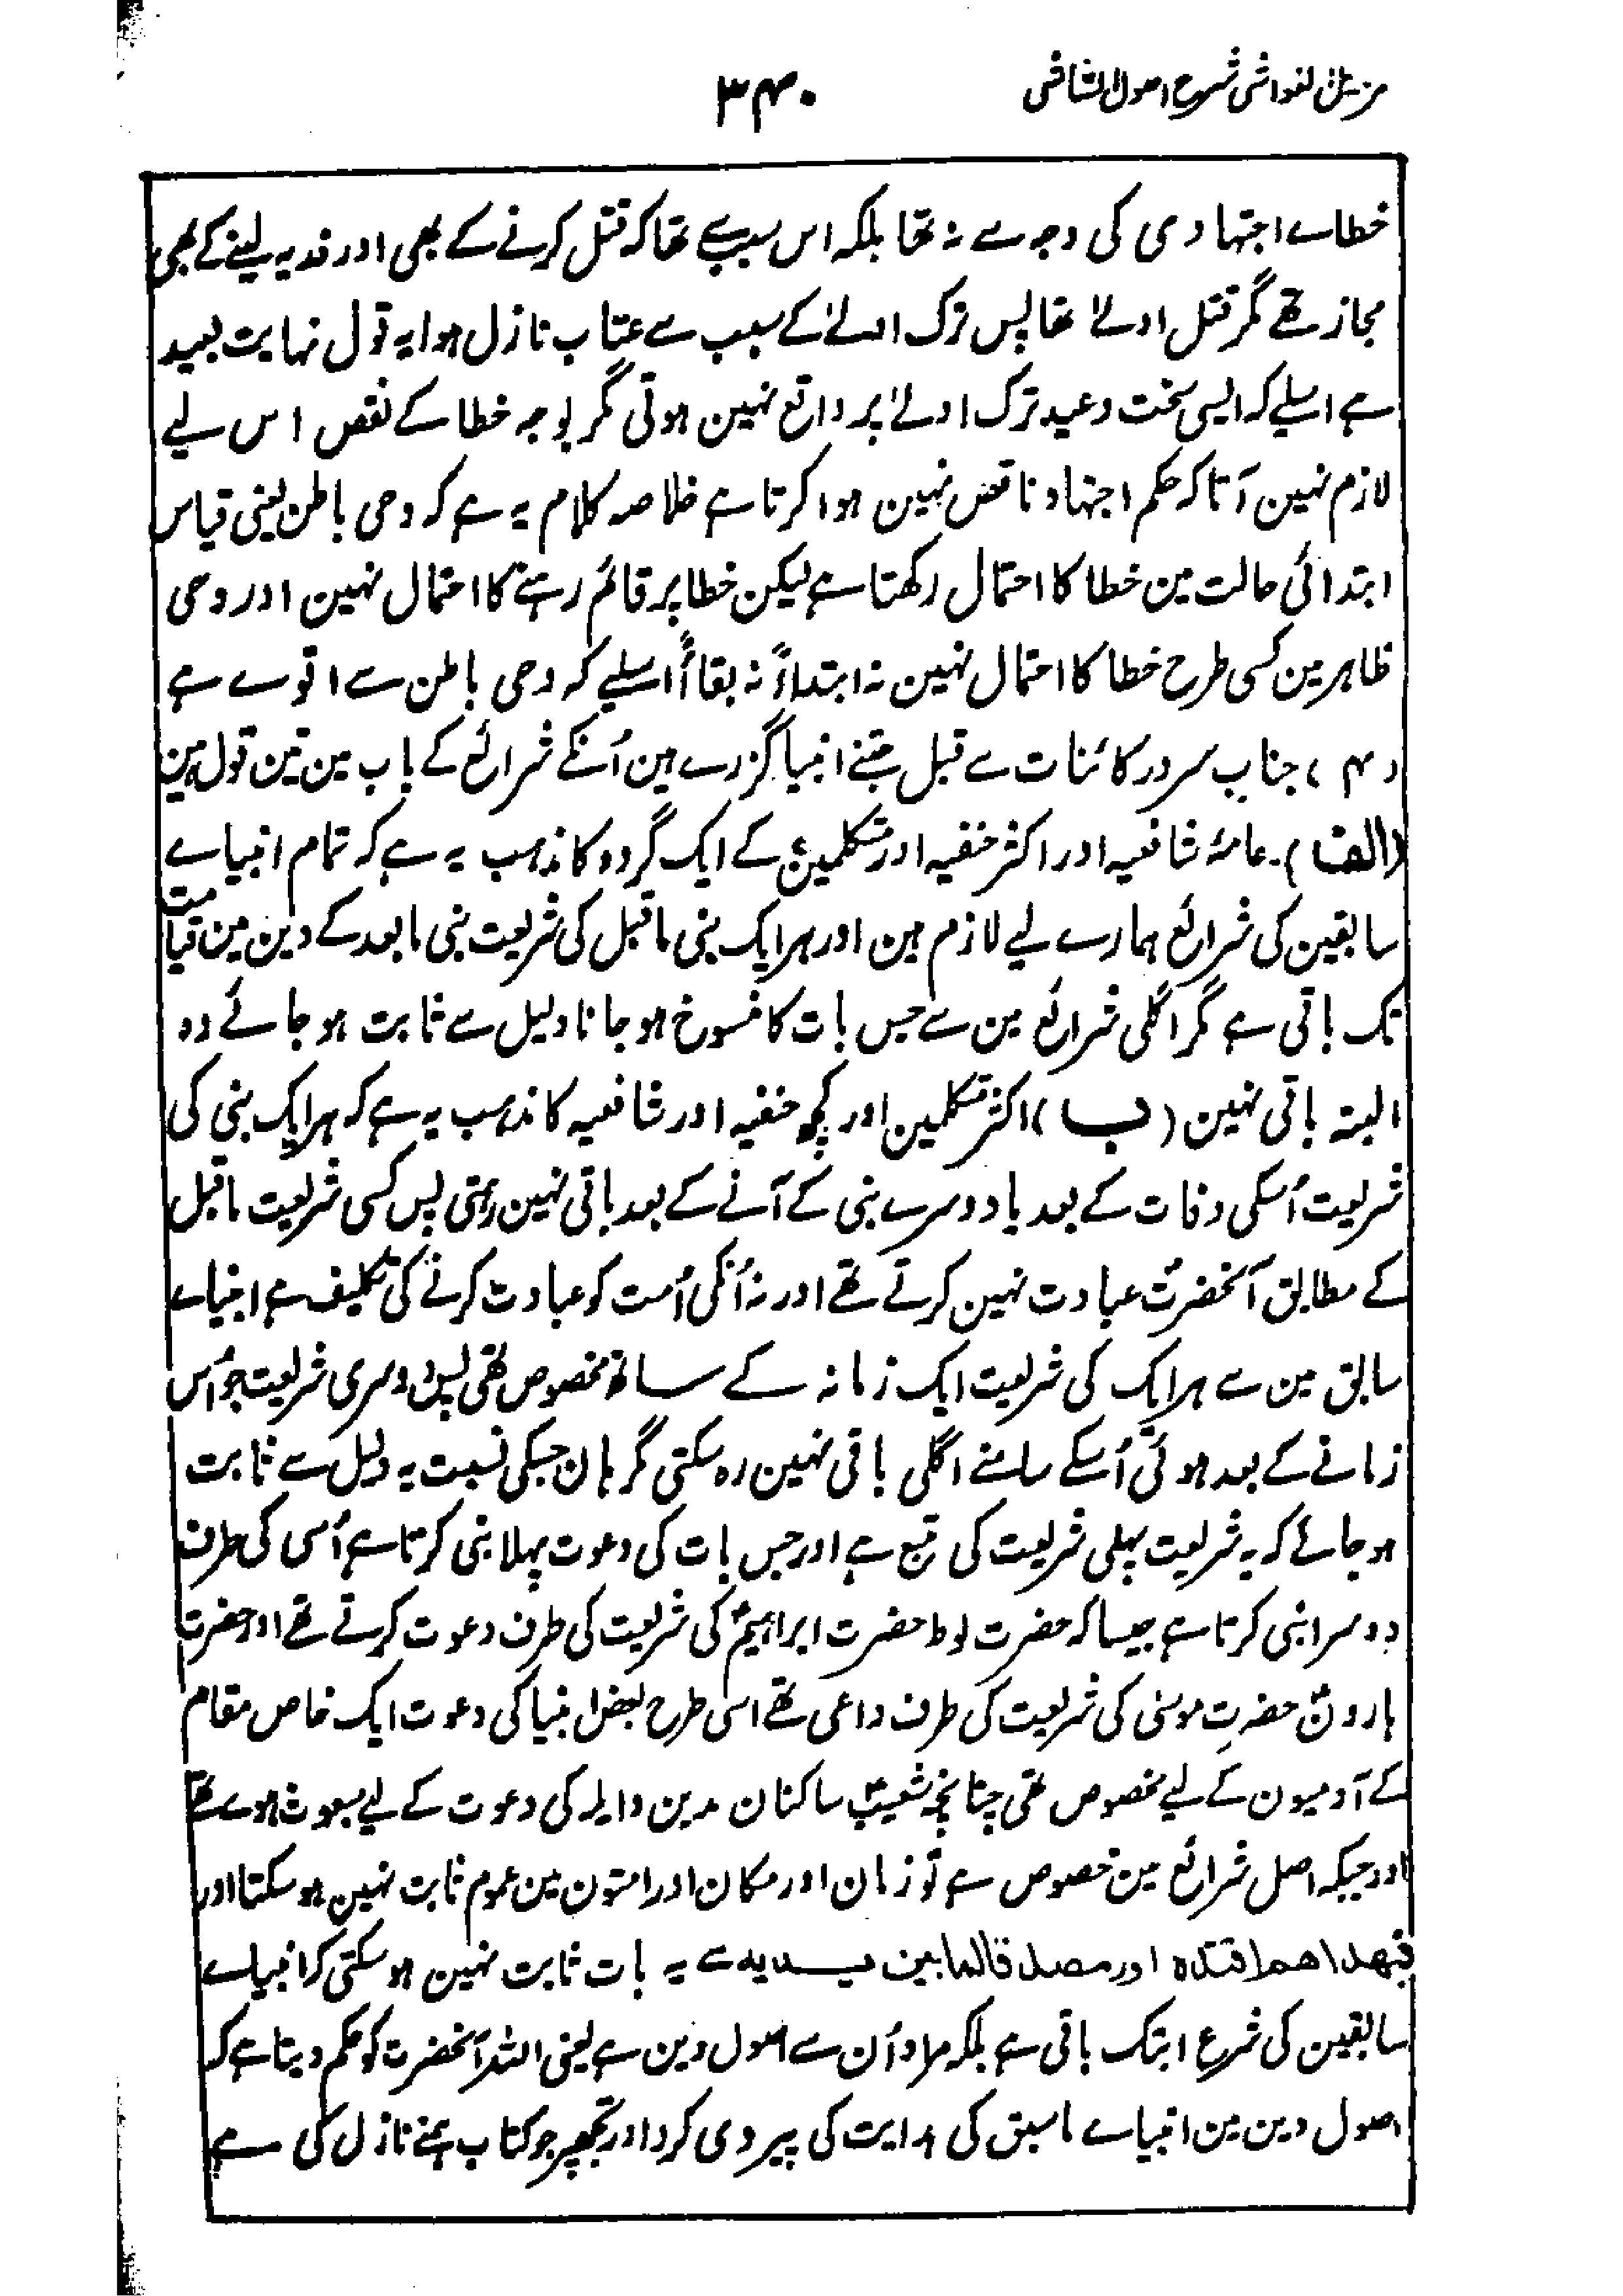 مزیل الغواشی شرح اصول الشاشی
۳۴۰
خطاے اجتہادی کی وجہ سے نہ تھا بلکہ اس سبب سے تھا کہ قتل کرنے کے بھی اور فدیہ لینے کے بھی
مجاز تھے مگر قتل اولےٰ تھا پس ترک اولےٰ کے سبب سے عتاب نازل ہوا یہ قول نہایت بعید
ہے اسلیے کہ ایسی سخت وعید ترک اولےٰ پر واقع نہین ہوتی مگر بوجہ خطا کے نقص اس لیے
لازم نہین آتا کہ حکم اجتہاد ناقص نہین ہوا کرتا ہے خلاصہ کلام یہ ہے کہ وحی باطن یعنی قیاس
ابتدائی حالت مین خطا کا احتمال رکھتا ہے لیکن خطا پر قائم رہنے کا احتمال نہین اور وحی
ظاہر مین کسی طرح خطا کا احتمال نہین نہ ابتداءً نہ بقاءً اسلیے کہ وحی باطن سے اقوے ہے
(۴) جناب سرور کائنات سے قبل جتنے انبیا گزرے ہین اُنکے شرائع کے باب مین تین قول ہین
(الف)۔ عامۂ شافعیہ اور اکثر حنفیہ اور متکلمین کے ایک گروہ کا مذہب یہ ہے کہ تمام انبیاے
سابقین کی شرائع ہمارے لیے لازم ہین اور ہر ایک نبی ماقبل کی شریعت نبی مابعد کے دین مین قیامت
تک باقی ہے مگر اگلی شرائع مین سے جس بات کا منسوخ ہو جانا دلیل سے ثابت ہو جائے وہ
البتہ باقی نہین (ب) اکثر متکلمین اور کچھ حنفیہ اور شافعیہ کا مذہب یہ ہے کہ ہر ایک نبی کی
شریعت اُسکی وفات کے بعد یا دوسرے نبی کے آنے کے بعد باقی نہین رہتی پس کسی شریعت ماقبل
کے مطابق آنحضرتؐ عبادت نہین کرتے تھے اور نہ اُنکی اُمت کو عبادت کرنے کی تکلیف ہے انبیاے
سابق مین سے ہر ایک کی شریعت ایک زمانہ کے ساتھ مخصوص تھی پس دوسری شریعت جو اُس
زمانے کے بعد ہوئی اُسکے سامنے اگلی باقی نہین رہ سکتی مگر ہان جسکی نسبت یہ دلیل سے ثابت
ہو جائے کہ یہ شریعت پہلی شریعت کی تبع ہے اور جس بات کی دعوت پہلا نبی کرتا ہے اُسی کی طرف
دوسرا نبی کرتا ہے جیسا کہ حضرت لوط حضرت ابراہیمؑ کی شریعت کی طرف دعوت کرتے تھے اور حضرت
ہارونؑ حضرتِ موسٰی کی شریعت کی طرف داعی تھے اسی طرح بعض انبیا کی دعوت ایک خاص مقام
کے آدمیون کے لیے مخصوص تھی چنانچہ شعیبؑ ساکنان مدین و ایلہ کی دعوت کے لیے مبعوث ہوے تھے
اور جبکہ اصل شرائع مین خصوص ہے تو زمان اور مکان اور امتون مین عموم ثابت نہین ہو سکتا اور
فبهداهم اقتده اور مصدقا لما بين يديه سے یہ بات ثابت نہین ہو سکتی کہ انبیاے
سابقین کی شرع ابتک باقی ہے بلکہ مراد اُن سے اصول دین ہے یعنی اللہ آنحضرت کو حکم دیتا ہے کہ
اصول دین مین انبیاے ماسبق کی ہدایت کی پیروی کرو اور تجھپر جو کتاب ہمنے نازل کی ہے